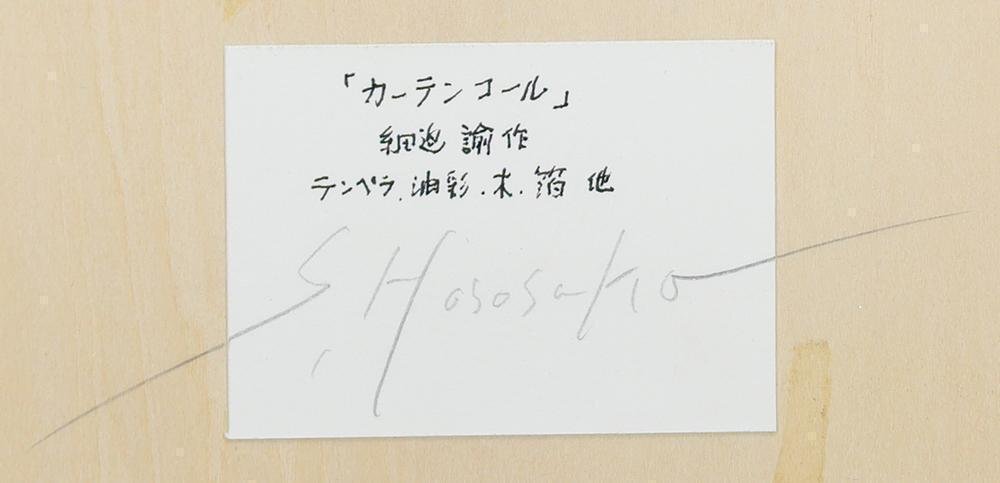 「カーテンコール」
細迫 諭作
テンペラ.油彩.木.箔 他
S. Hososako